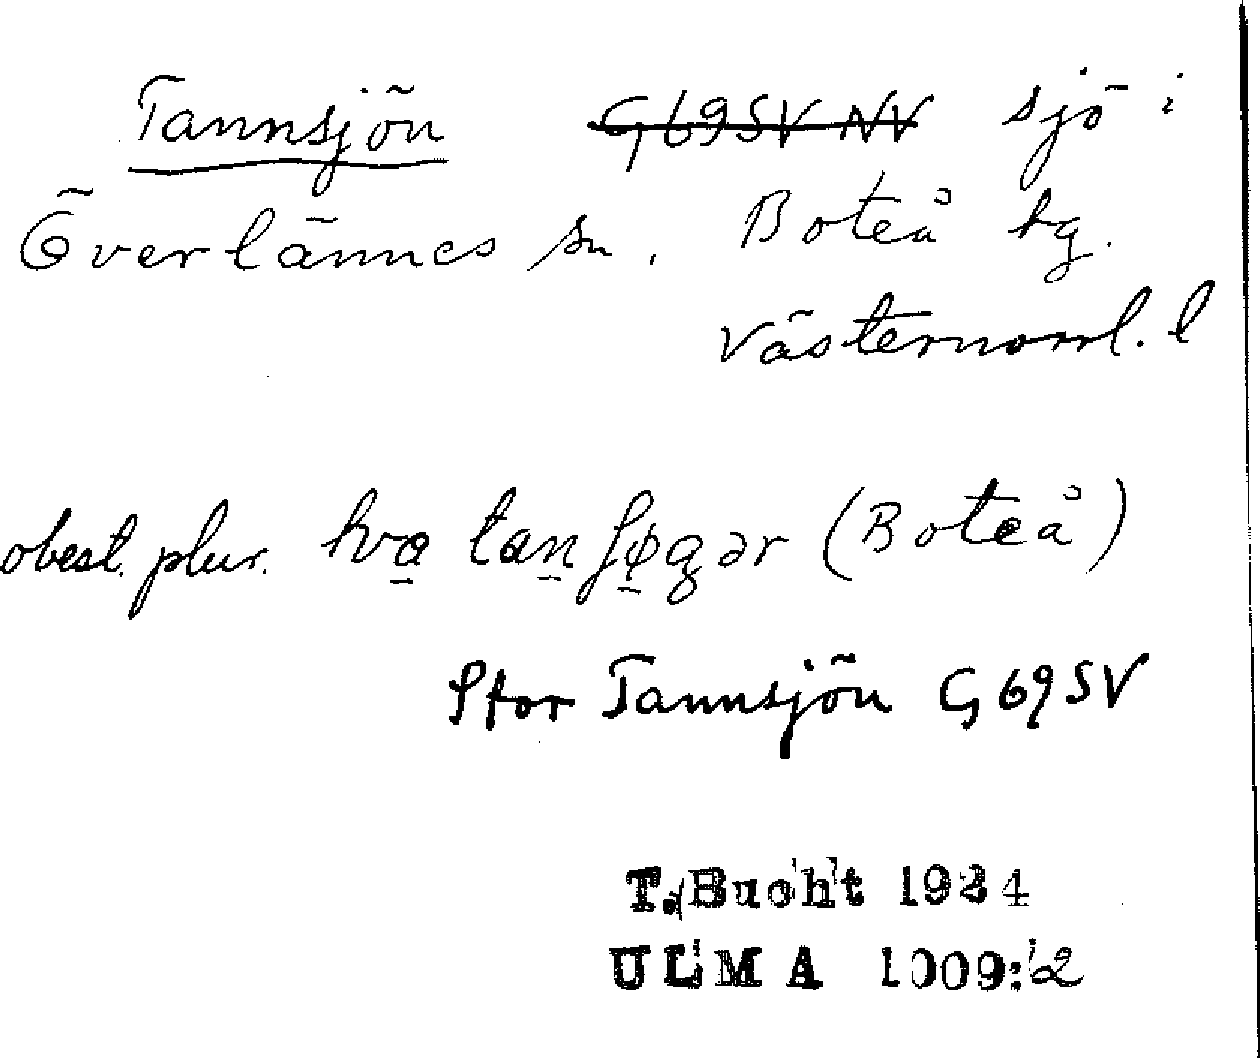 Tannsjön G69SV NV sjö i
Överlännes sn. Boteå tg.
Västernorrl. l
obest. plur. tvɑ̱ tan̠ʃø̱gər (Boteå)
Stor Tannsjön G69SV
T. Bucht 1934
ULMA 1009:2